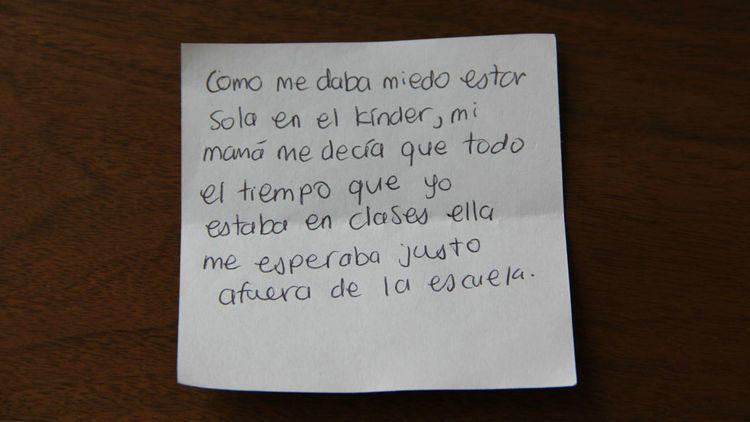 Como me daba miedo estar
sola en el kínder, mi
mamá me decía que todo
el tiempo que yo
estaba en clases ella
me esperaba justo
afuera de la escuela.